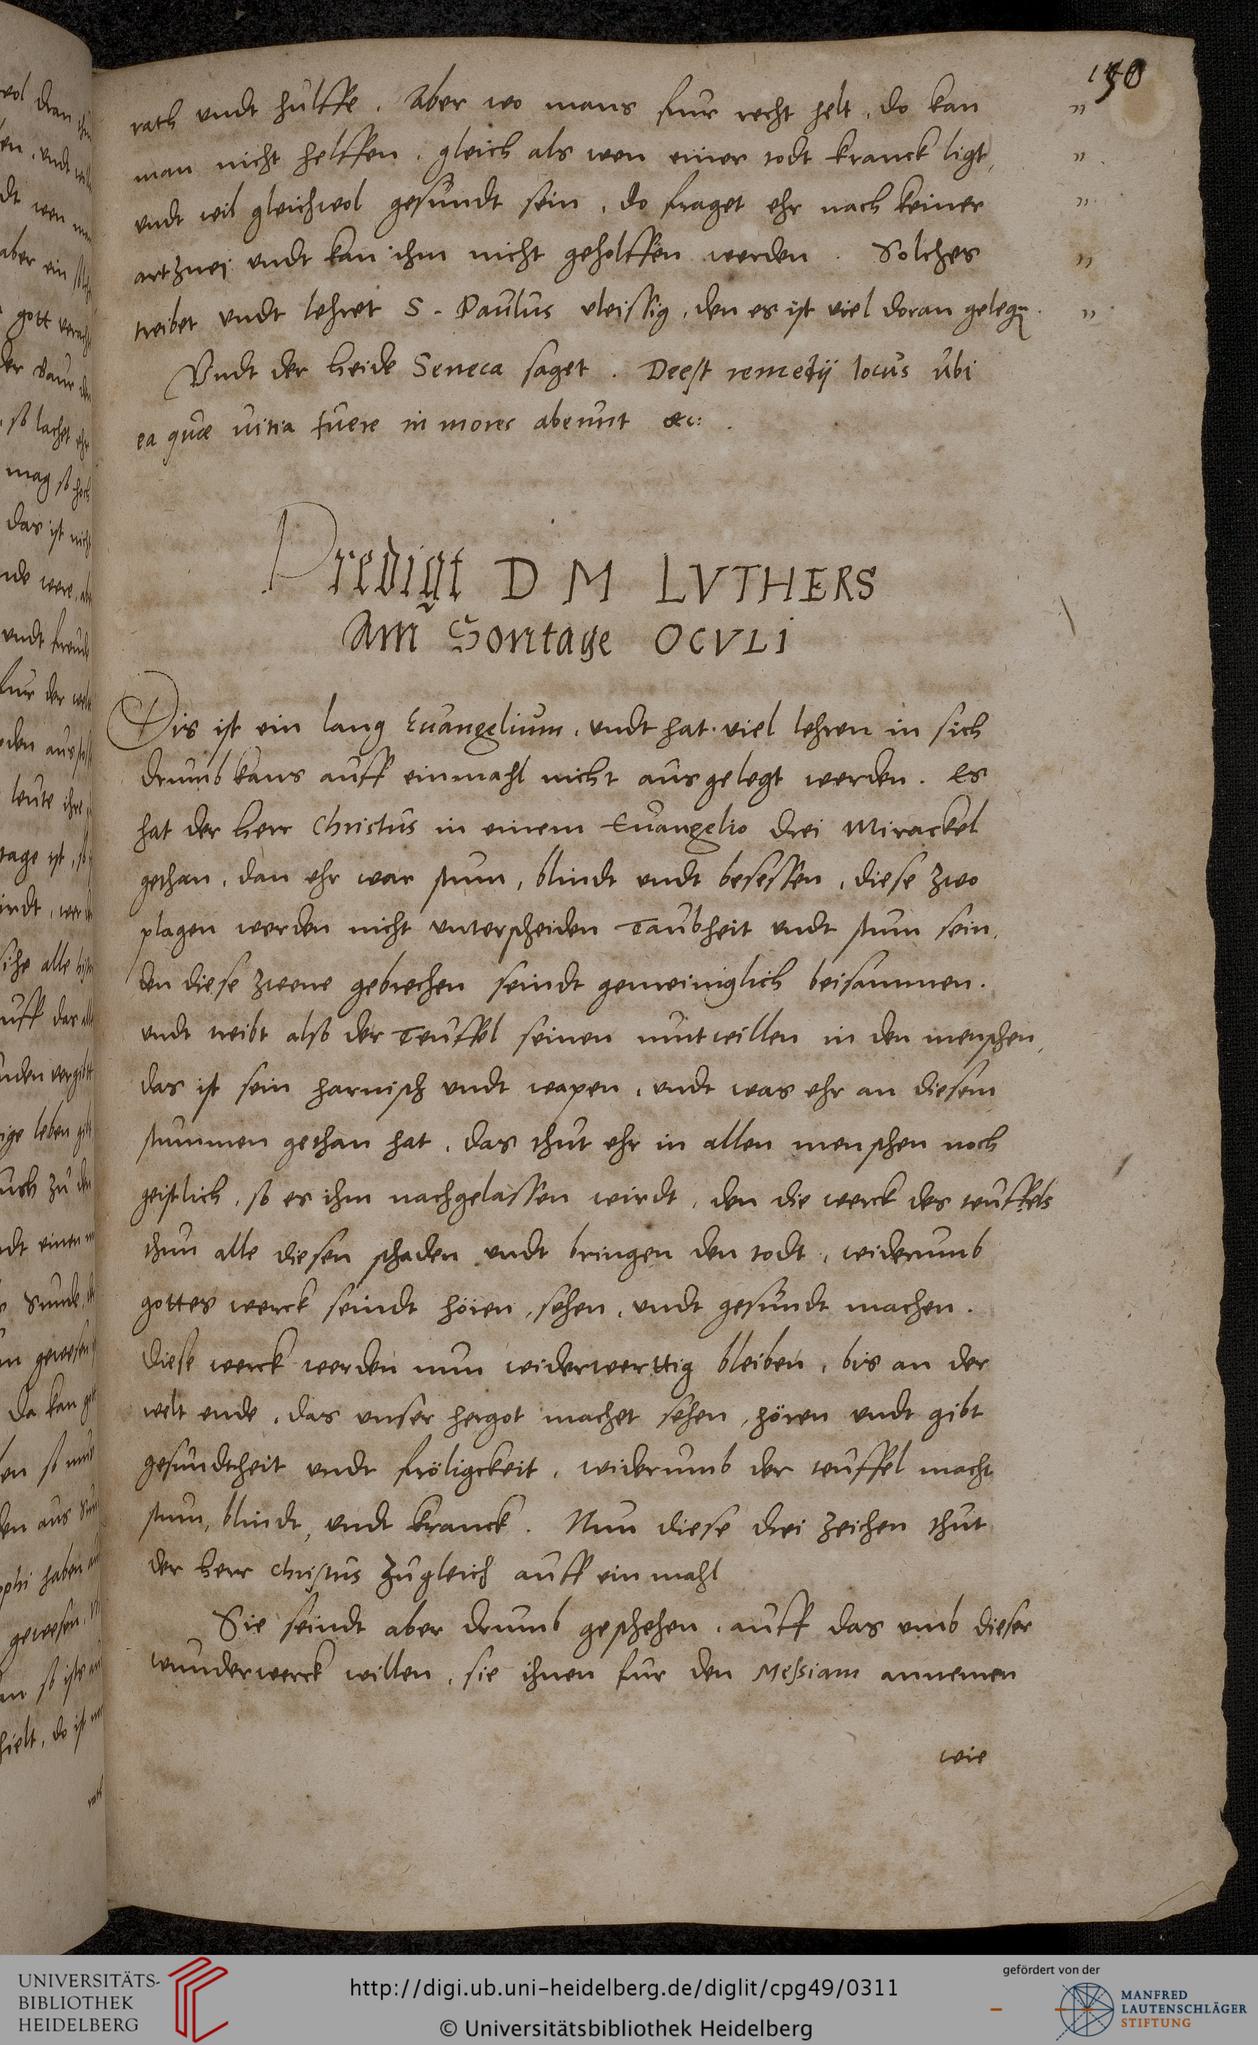 150
rath undt hulffe. Aber wo mans fur recht helt, do kan
man nicht helffen, gleich als wen einer todt kranck ligt,
undt wil gleichwol gesundt sein, do fraget ehr nach keiner
artznei undt kan ihm nicht geholffen werden. Solches
treibet undt lehret S. Paulus vleissig, den es ist viel doran gelegen.
Undt der heide Seneca saget. Deest remedij locus ubi
ea quae uitia fuere in mores abeunt &c:
Predigt D M LVTHERS
Am Sontage OCVLI
Dis ist ein lang Euangelium, undt hat viel lehren in sich
drumb kans auff einmahl nicht ausgelegt werden. Es
hat der herr Christus in einem Euangelio drei Mirackel
gethan, dan ehr war stum, blindt undt besessen, diese zwo
plagen werden nicht unterscheiden Taubheit undt stum sein,
den diese zweene gebrechen seindt gemeiniglich beisammen.
undt treibt also der Teuffel seinen mutwillen in den menschen,
das ist sein harnisch undt wapen, undt was ehr an diesem
stummen gethan hat, das thut ehr in allen menschen noch
geistlich, so es ihm nachgelassen wirdt, den die werck des teuffels
thun alle diesen schaden undt bringen den todt, widerumb
gottes werck seindt hören, sehen, undt gesundt machen.
Diese werck werden nun widerwerttig bleiben, bis an der
welt ende, das unser hergot machet sehen, hören undt gibt
gesundtheit undt fröligckeit, widerumb der teuffel macht
stum, blindt, undt kranck. Nun diese drei zeichen thut
der herr Christus zugleich auff ein mahl
Sie seindt aber drumb geschehen, auff das umb dieser
wunderwerck willen, sie ihnen fur den Messiam annemen
wie
UNIVERSITÄTS-
BIBLIOTHEK
HEIDELBERG
http://digi.ub.uni-heidelberg.de/diglit/cpg49/0311
© Universitätsbibliothek Heidelberg
gefördert von der
MANFRED
LAUTENSCHLÄGER
STIFTUNG